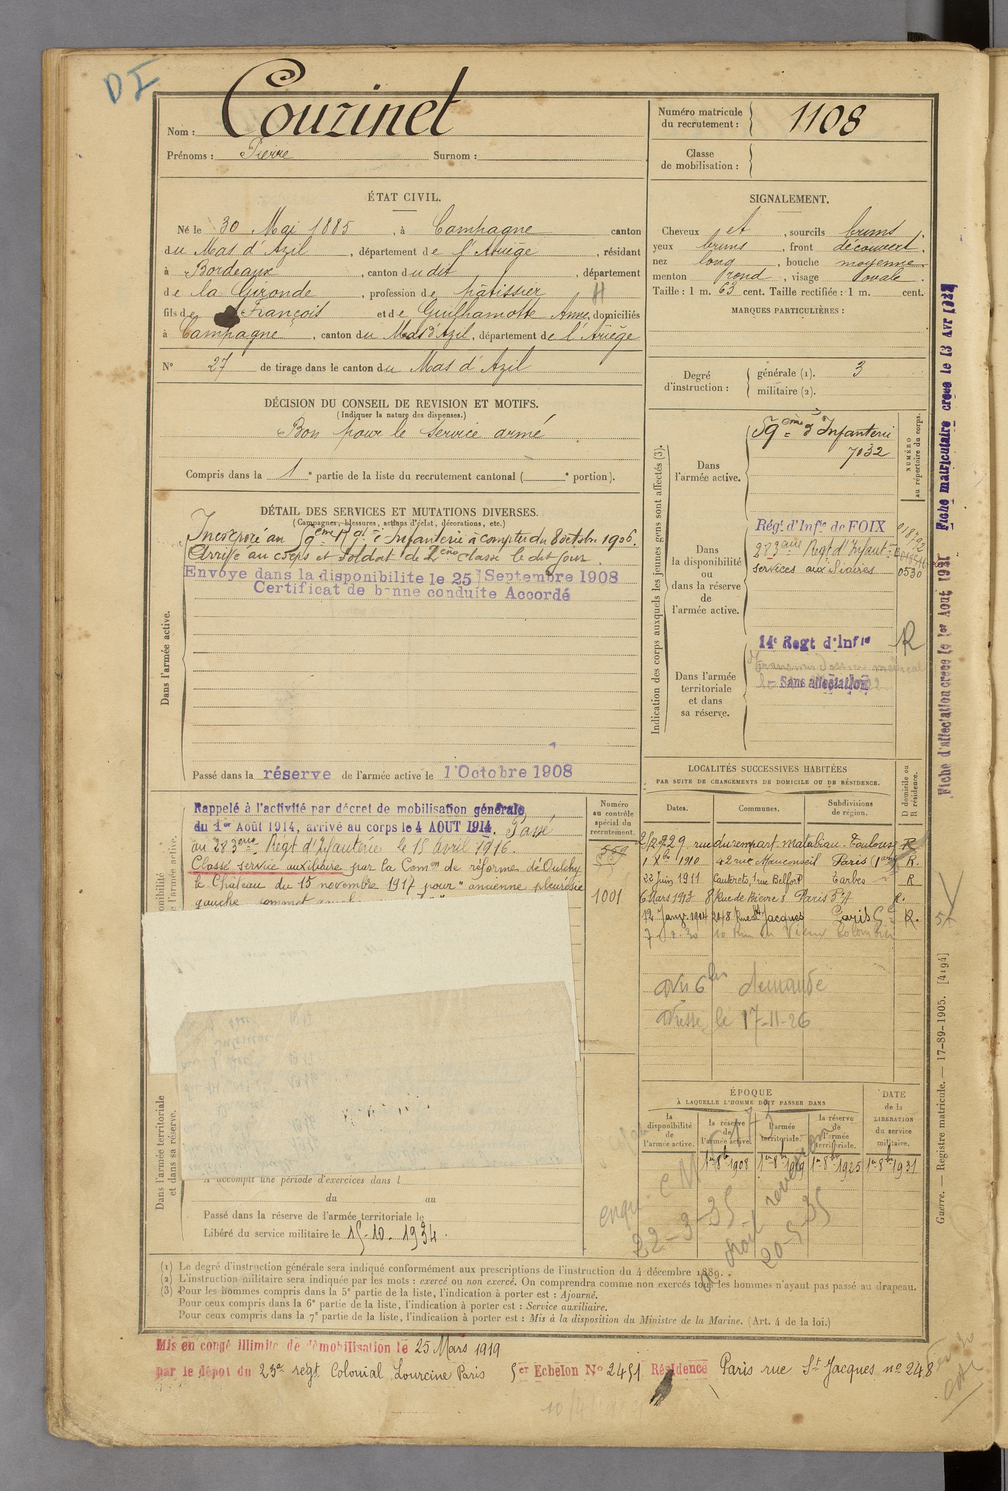 DI
Nom : Couzinet
Prénoms : Pierre Surnom :
Numéro matricule du recrutement : 1108
Classe de mobilisation :
ÉTAT CIVIL.
Né le 30 Mai 1885, à Campagne canton
du Mas d'Azil, département de l'Ariège, résidant
à Bordeaux, canton du dit, département
de la Gironde, profession de pâtissier
fils de François et de Guilhamotte Anne, domiciliés
à Campagne, canton du Mas d'Azil, département de l'Ariège
N° 27 de tirage dans le canton du Mas d'Azil
SIGNALEMENT.
Cheveux et, sourcils bruns
yeux bruns, front découvert
nez long, bouche moyenne
menton rond, visage ovale.
Taille : 1 m. 63 cent. Taille rectifiée : 1 m. cent.
MARQUES PARTICULIÈRES :
Degré d'instruction : générale (1). 3
militaire (2).
DÉCISION DU CONSEIL DE REVISION ET MOTIFS.
(Indiquer la nature des dispenses.)
Bon pour le service armé
Compris dans la 1e partie de la liste du recrutement cantonal ( e portion).
DÉTAIL DES SERVICES ET MUTATIONS DIVERSES.
(Campagnes, blessures, actions d'éclat, décorations, etc.)
Incorporé au 59ème Rgt d'Infanterie à compter du 8 octobre 1906.
Arrivé au corps et soldat de 2ème classe le dit jour.
Envoyé dans la disponibilite le 25 Septembre 1908
Certificat de bonne conduite Accordé
Dans l'armée active.
Passé dans la réserve de l'armée active le 1 Octobre 1908
Rappelé à l'activité par décret de mobilisation générale
du 1er Août 1914, arrivé au corps le 4 AOUT 1914. Passé
au 283eme Régt d'Infanterie le 15 avril 1916.
Classé service auxiliaire par la Comon de réforme d'Oulchy
le Château du 15 novembre 1917 pour "ancienne pleurésie
gauche
Numéro au contrôle spécial du recrutement.
559
1001
Indication des corps auxquels les jeunes gens sont affectés (3).
NUMÉRO au répertoire du corps.
Dans l'armée active.
59ème d'Infanterie
7032
Dans la disponibilité ou dans la réserve de l'armée active.
Régt d'Infie de FOIX
283ème Régt d'Infant
services auxiliaires
0530
Dans l'armée territoriale et dans sa réserve.
14e Regt d'Infie R
Sans affectation
Fiche d'affectation créée le 1er Aout 1921 Fiche matriculaire créée le 13 Avr
LOCALITÉS SUCCESSIVES HABITÉES
PAR SUITE DE CHANGEMENTS DE DOMICILE OU DE RÉSIDENCE.
D domicile ou R résidence.
Dates. Communes. Subdivisions de région.
29 rue du rempart-matabiau. Toulouse R
1 Xbre 1910 42 rue Mauconseil Paris R.
22 Juin 1911 Cauterets, 1 rue Belfort Tarbes R
6 Mars 1913 8 Rue de Bièvre Paris R.
12 Janv. 1914 248 Rue St Jacques Paris R.
10 Rue du Vieux Colombier
demande
adresse le 17-11-26
ÉPOQUE
À LAQUELLE L'HOMME DOIT PASSER DANS
la disponibilité de l'armée active.
la réserve de l'armée active.
l'armée territoriale.
la réserve de l'armée territoriale.
DATE de la LIBÉRATION du service militaire.
1er 8bre 1908 1er 8bre 1919 1er 8bre 1925 1er 8bre 1931
22-3-35
20-5-35
Dans l'armée territoriale et dans sa réserve.
A accompli une période d'exercices dans l
du au
Passé dans la réserve de l'armée territoriale le
Libéré du service militaire le 15-10-1934.
(1) Le degré d'instruction générale sera indiqué conformément aux prescriptions de l'instruction du 4 décembre 1889.
(2) L'instruction militaire sera indiquée par les mots : exercé ou non exercé. On comprendra comme non exercés tous les hommes n'ayant pas passé au drapeau.
(3) Pour les hommes compris dans la 5e partie de la liste, l'indication à porter est : Ajourné.
Pour ceux compris dans la 6e partie de la liste, l'indication à porter est : Service auxiliaire.
Pour ceux compris dans la 7e partie de la liste, l'indication à porter est : Mis à la disposition du Ministre de la Marine. (Art. 4 de la loi.)
Guerre. — Registre matricule. — 17-89-1905. [4194]
Mis en congé illimité de démobilisation le 25 Mars 1919
par le dépôt du 23e régt Colonial Lourcine Paris 5er Echelon N° 2451 Résidence Paris rue St Jacques no 248